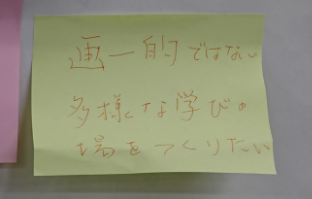 画一的ではない
多様な学びの
場をつくりたい